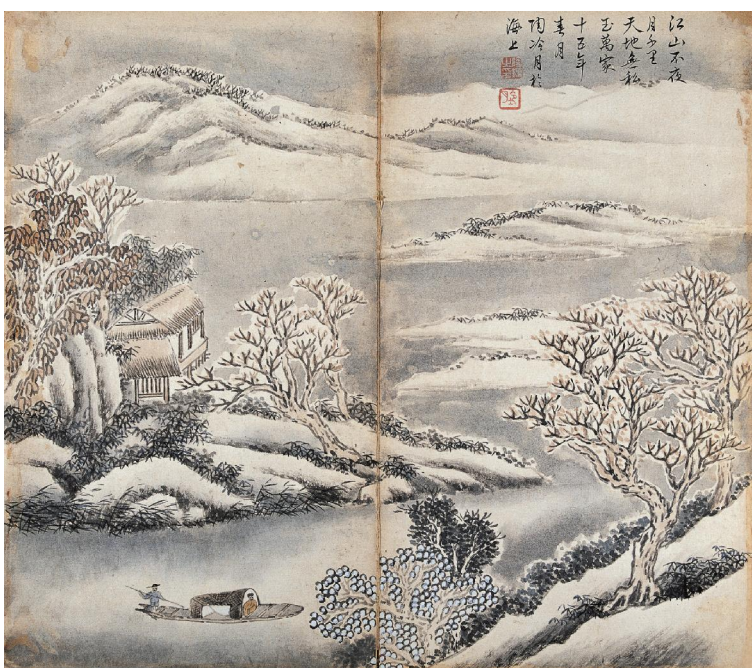 江山不夜
月千里
天地無私
玉萬家
十五年
春月
陶冷月於
海上